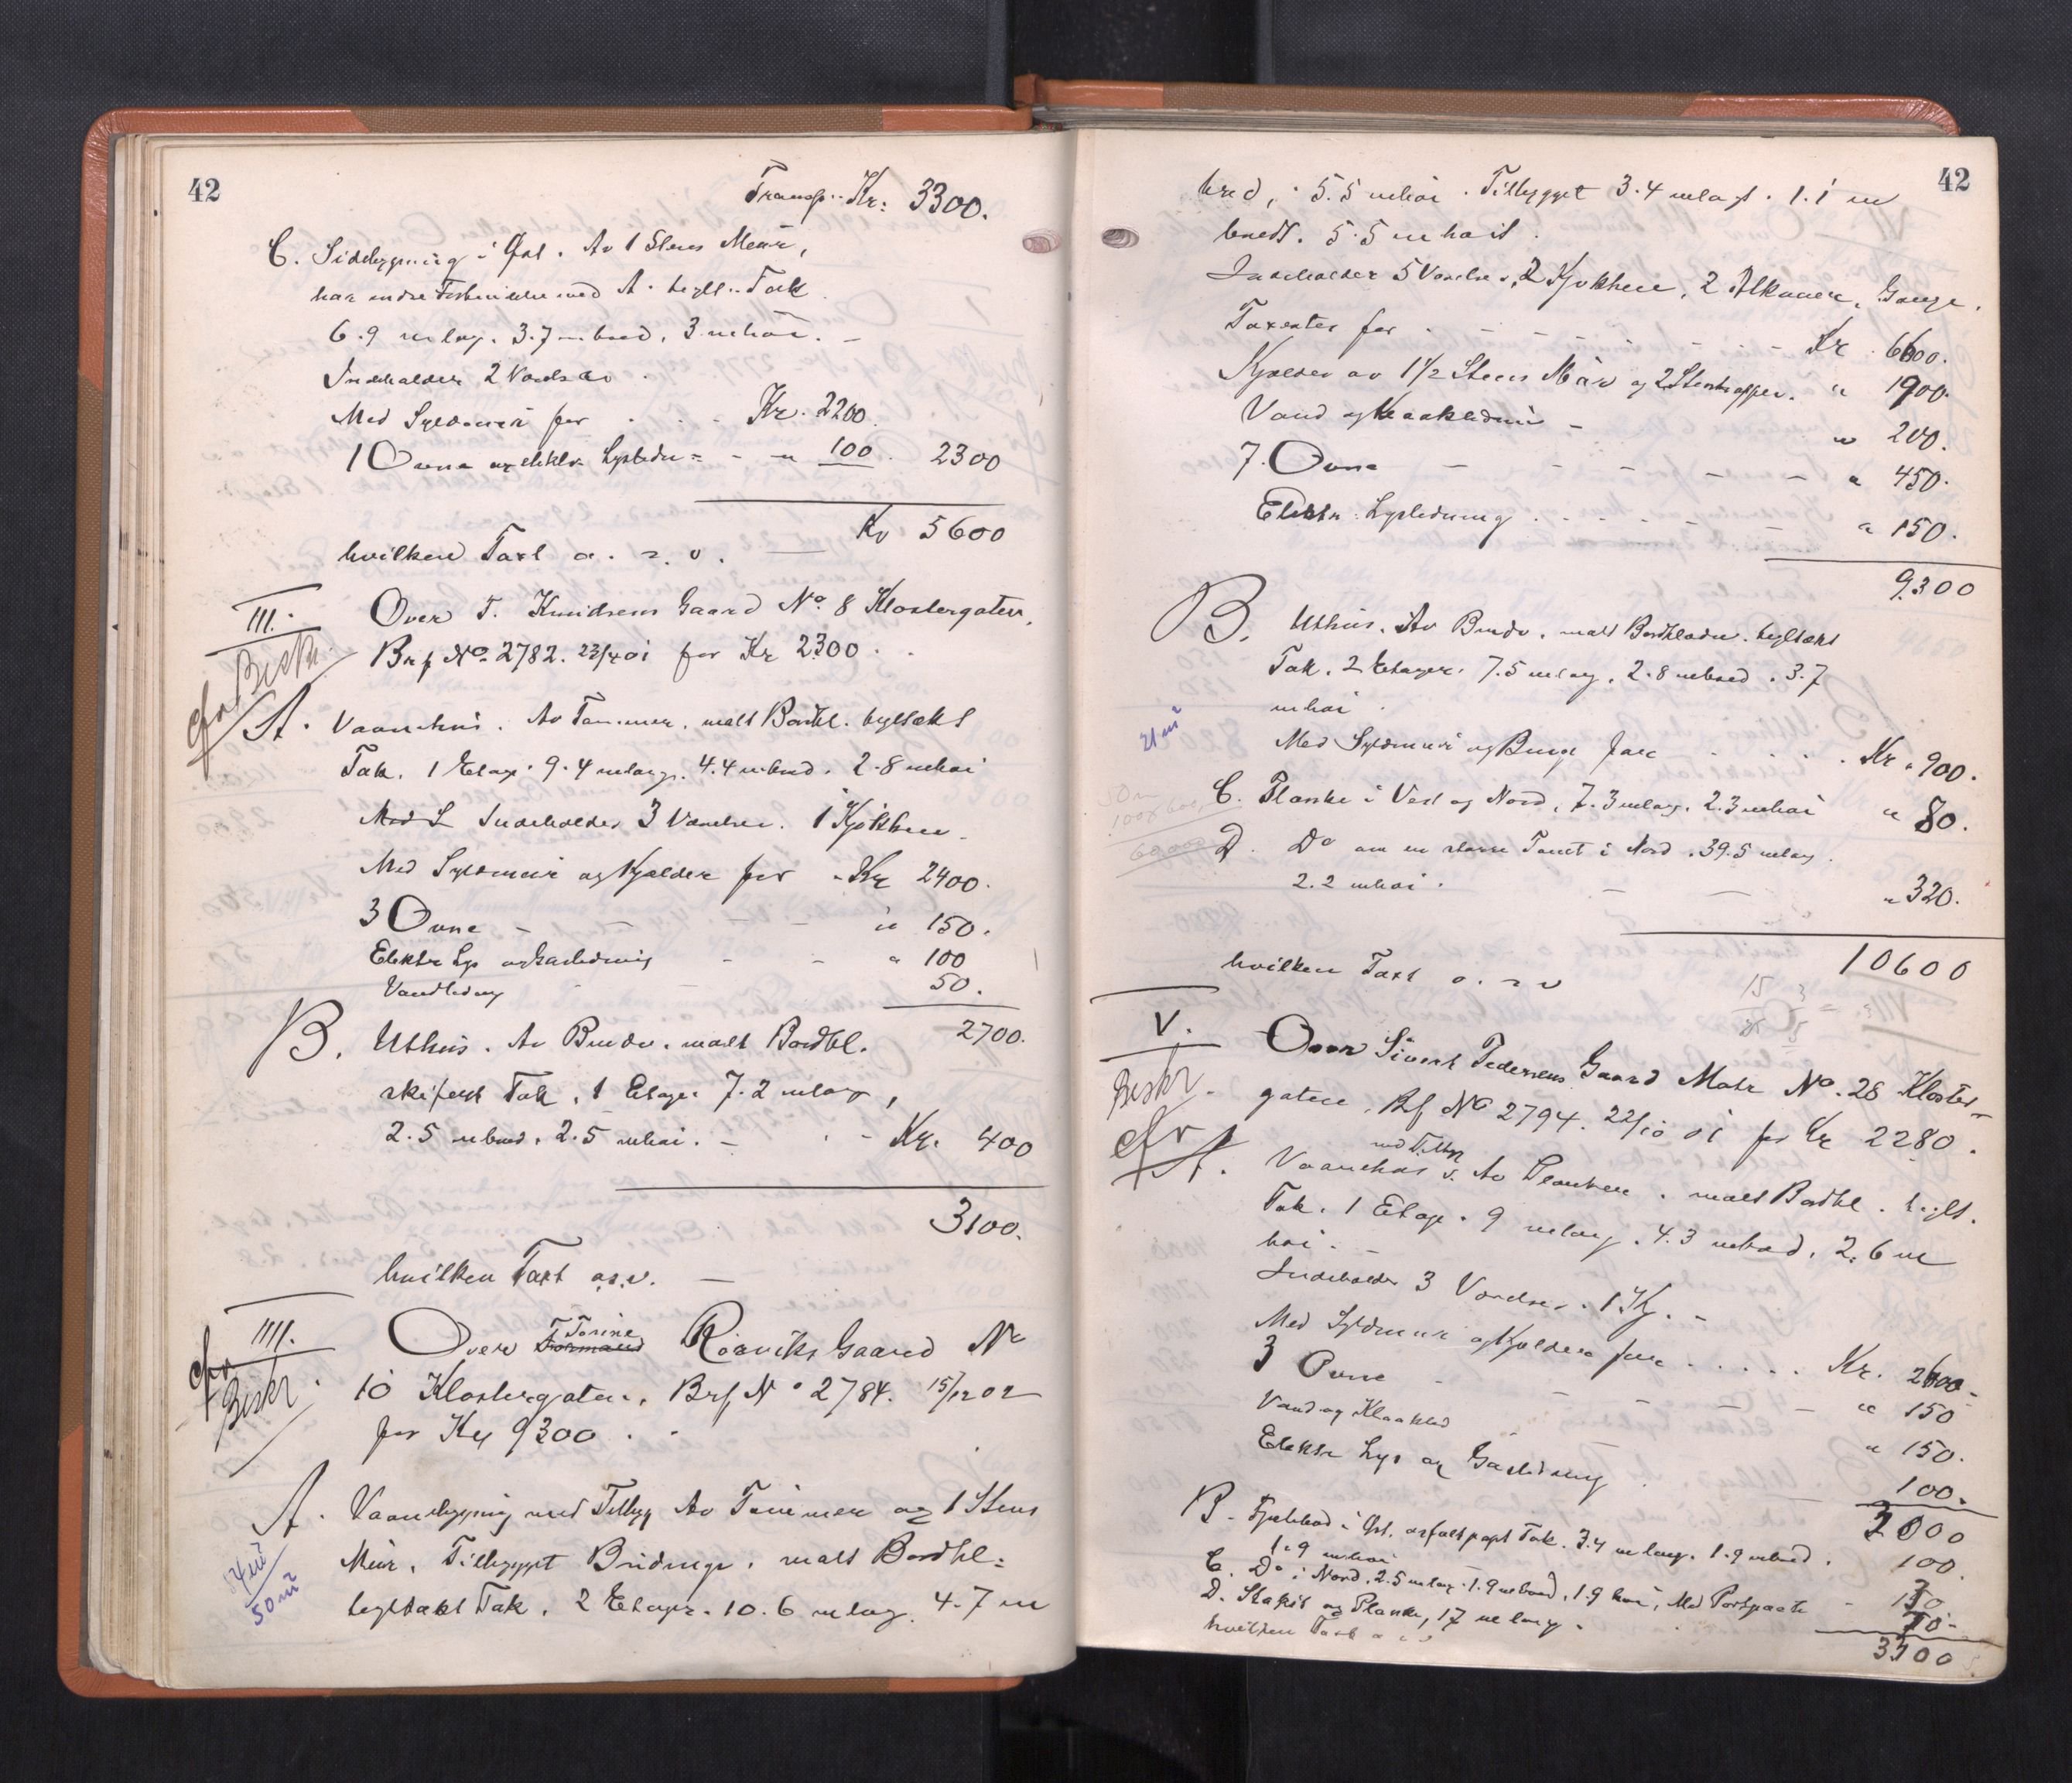 42
Transp. Kr. 3300.
C. Sidebygning i Øst. Av 1 Stens Muur,
har indre Forbindelse med A. tegll. Tak
6.9 m lang. 3.7 m bred. 3 m høi. —
Indeholder 2 Værelser.
Med Syldmur for . . . Kr. 2200
1 Ovne og elektr. Lysledn = - " 100. 2300
Kr 5600
hvilken Taxt o. s. v. —
III. Over T. Knudsens Gaard No. 8 Klostergaten,
Brf No. 2782. 23/4 01 for Kr 2300.
Beskr.
cfr
A. Vaanehus. Av Tømmer. malt Bordkl. tegltækt
Tak. 1 Etage. 9.4 m lang. 4.4 m bred. 2.8 m høi
Med S Indeholder 3 Værelser. 1 Kjøkken.
Med Syldmur og Kjælder for - Kr 2400.
3 Ovne - - " 150.
Elektr Lys og Gasledning - - " 100
Vandledning 50.
2700.
B. Uthus. Av Bindv. malt Bordkl.
skifert Tak. 1 Etage. 7.2 m lang,
2.5 m bred. 2.5 m høi. - . - Kr. 400
3100.
hvilken Taxt o.s.v. —
IIII. Over Tormand Torine Rosviks Gaard No
cfr
Beskr.
10 Klostergaten, Brf No 2784. 15/12 02
for Kr 9300.
A. Vaanebygning med Tilbyg Av Tømmer og 1 Stens
Muur. Tilbygget Bindinge. malt Bordkl =
tegltækt Tak. 2 Etager. 10.6 m lang. 4.7 m
50 m2
42
bred, 5.5 m høi. Tilbygget 3.4 m langt. 1.1 m
bredt. 5.5 m høit.
Indeholder 5 Værelser, 2 Kjøkken, 2 Alkover, Gange.
Taxertes for - - - Kr. 6600.
Kjælder av 1 1/2 Stens Mur og 2 Stentrapper. " 1900.
Vand og Kloakledning - " 200.
7. Ovne - - - " 450.
Elektr. Lysledning - - - " 150.
9300
B. Uthus. Av Bindv. malt Bordklædn. tegltækt
Tak. 2 Etager. 7.5 m lang. 2.8 m bred. 3.7
m høi.
21 m2
Med Syldmur og Bryg for . . . Kr. 900.
C. Planke i Vest og Nord. 7.3 m lang. 2.3 m høi " 80.
D. Do om en større Tomt i Nord. 39.5 m lang.
2.2 m høi. - - " 320.
10600
hvilken Taxt o. s v
V. Over Sivert Pedersens Gaard Matr No. 28 Kloster-
Beskr.
gaten, Brf No 2794. 22/10 01 for Kr 2280.
cfr
med Tilbyg
A. Vaanehus. Av Planker. malt Bordkl. teglt.
Tak. 1 Etage. 9 m lang. 4.3 m bred. 2.6 m
høi. -
Indeholder 3 Værelser. 1 Kj. -
Med Syldmur og Kjælder for . . . . Kr. 2600 -
3 Ovne - - - " 150
Vand og Kloakled " 150.
Elektr Lys og Gasledning 100.
3000
B. Fjælebod i Øst. asfaltpapt Tak. 3.4 m lang. 1.9 m bred. 100.
1.9 m høi
C. Do i Nord. 2.5 m lang. 1.9 m bred. 1.9 høi, Med Portgaate - 150
D. Stakit og Planke, 17 m lang. 50 -
hvilken Taxt o s v
3300